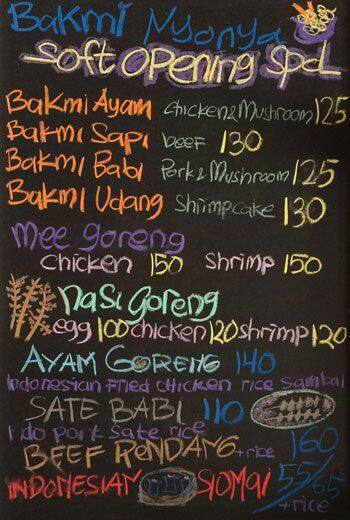 Bakmi Nyonya
Soft Opening Spcl
Bakmi Ayam Chicken & Mushroom 125
Bakmi Sapi beef 130
Bakmi Babi Pork & Mushroom 125
Bakmi Udang Shrimpcake 130
Mee Goreng
chicken 150 Shrimp 150
Nasi Goreng
egg 100 chicken 120 shrimp 120
AYAM GORENG 140
Indonesian Fried chicken rice Sambal
SATE BABI 110
Indo pork Sate rice
BEEF RENDANG + rice 160
INDONESIAN SIOMAI 55/65
+ rice